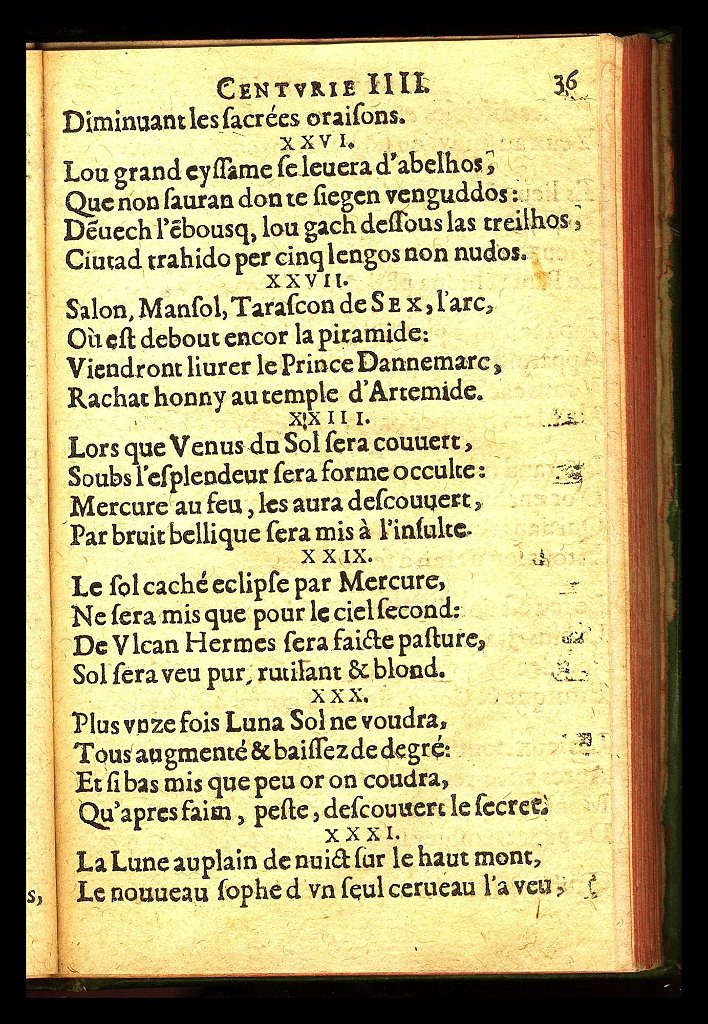 CENTVRIE IIII. 36
Diminuant les ſacrées oraiſons.
XXVI.
Lou grand eyſſame ſe leuera d'abelhos,
Que non ſauran don te ſiegen venguddos:
Dēuech l'ēbousq, lou gach deſſous las treilhos,
Ciutad trahido per cinq lengos non nudos.
XXVII.
Salon, Manſol, Taraſcon de SEX, l'arc,
Où eſt debout encor la piramide:
Viendront liurer le Prince Dannemarc,
Rachat honny au temple d'Artemide.
XXIII.
Lors que Venus du Sol ſera couuert,
Soubs l'eſplendeur ſera forme occulte:
Mercure au feu, les aura deſcouuert,
Par bruit bellique ſera mis à l'inſulte.
XXIX.
Le ſol caché eclipſe par Mercure,
Ne ſera mis que pour le ciel ſecond:
De Vlcan Hermes ſera faicte paſture,
Sol ſera veu pur, rutilant & blond.
XXX.
Plus vnze fois Luna Sol ne voudra,
Tous augmenté & baiſſez de degré:
Et ſi bas mis que peu or on coudra,
Qu'apres faim, peſte, deſcouuert le ſecret.
XXXI.
La Lune au plain de nuict ſur le haut mont,
Le nouueau ſophe d vn ſeul cerueau l'a veu,
s,